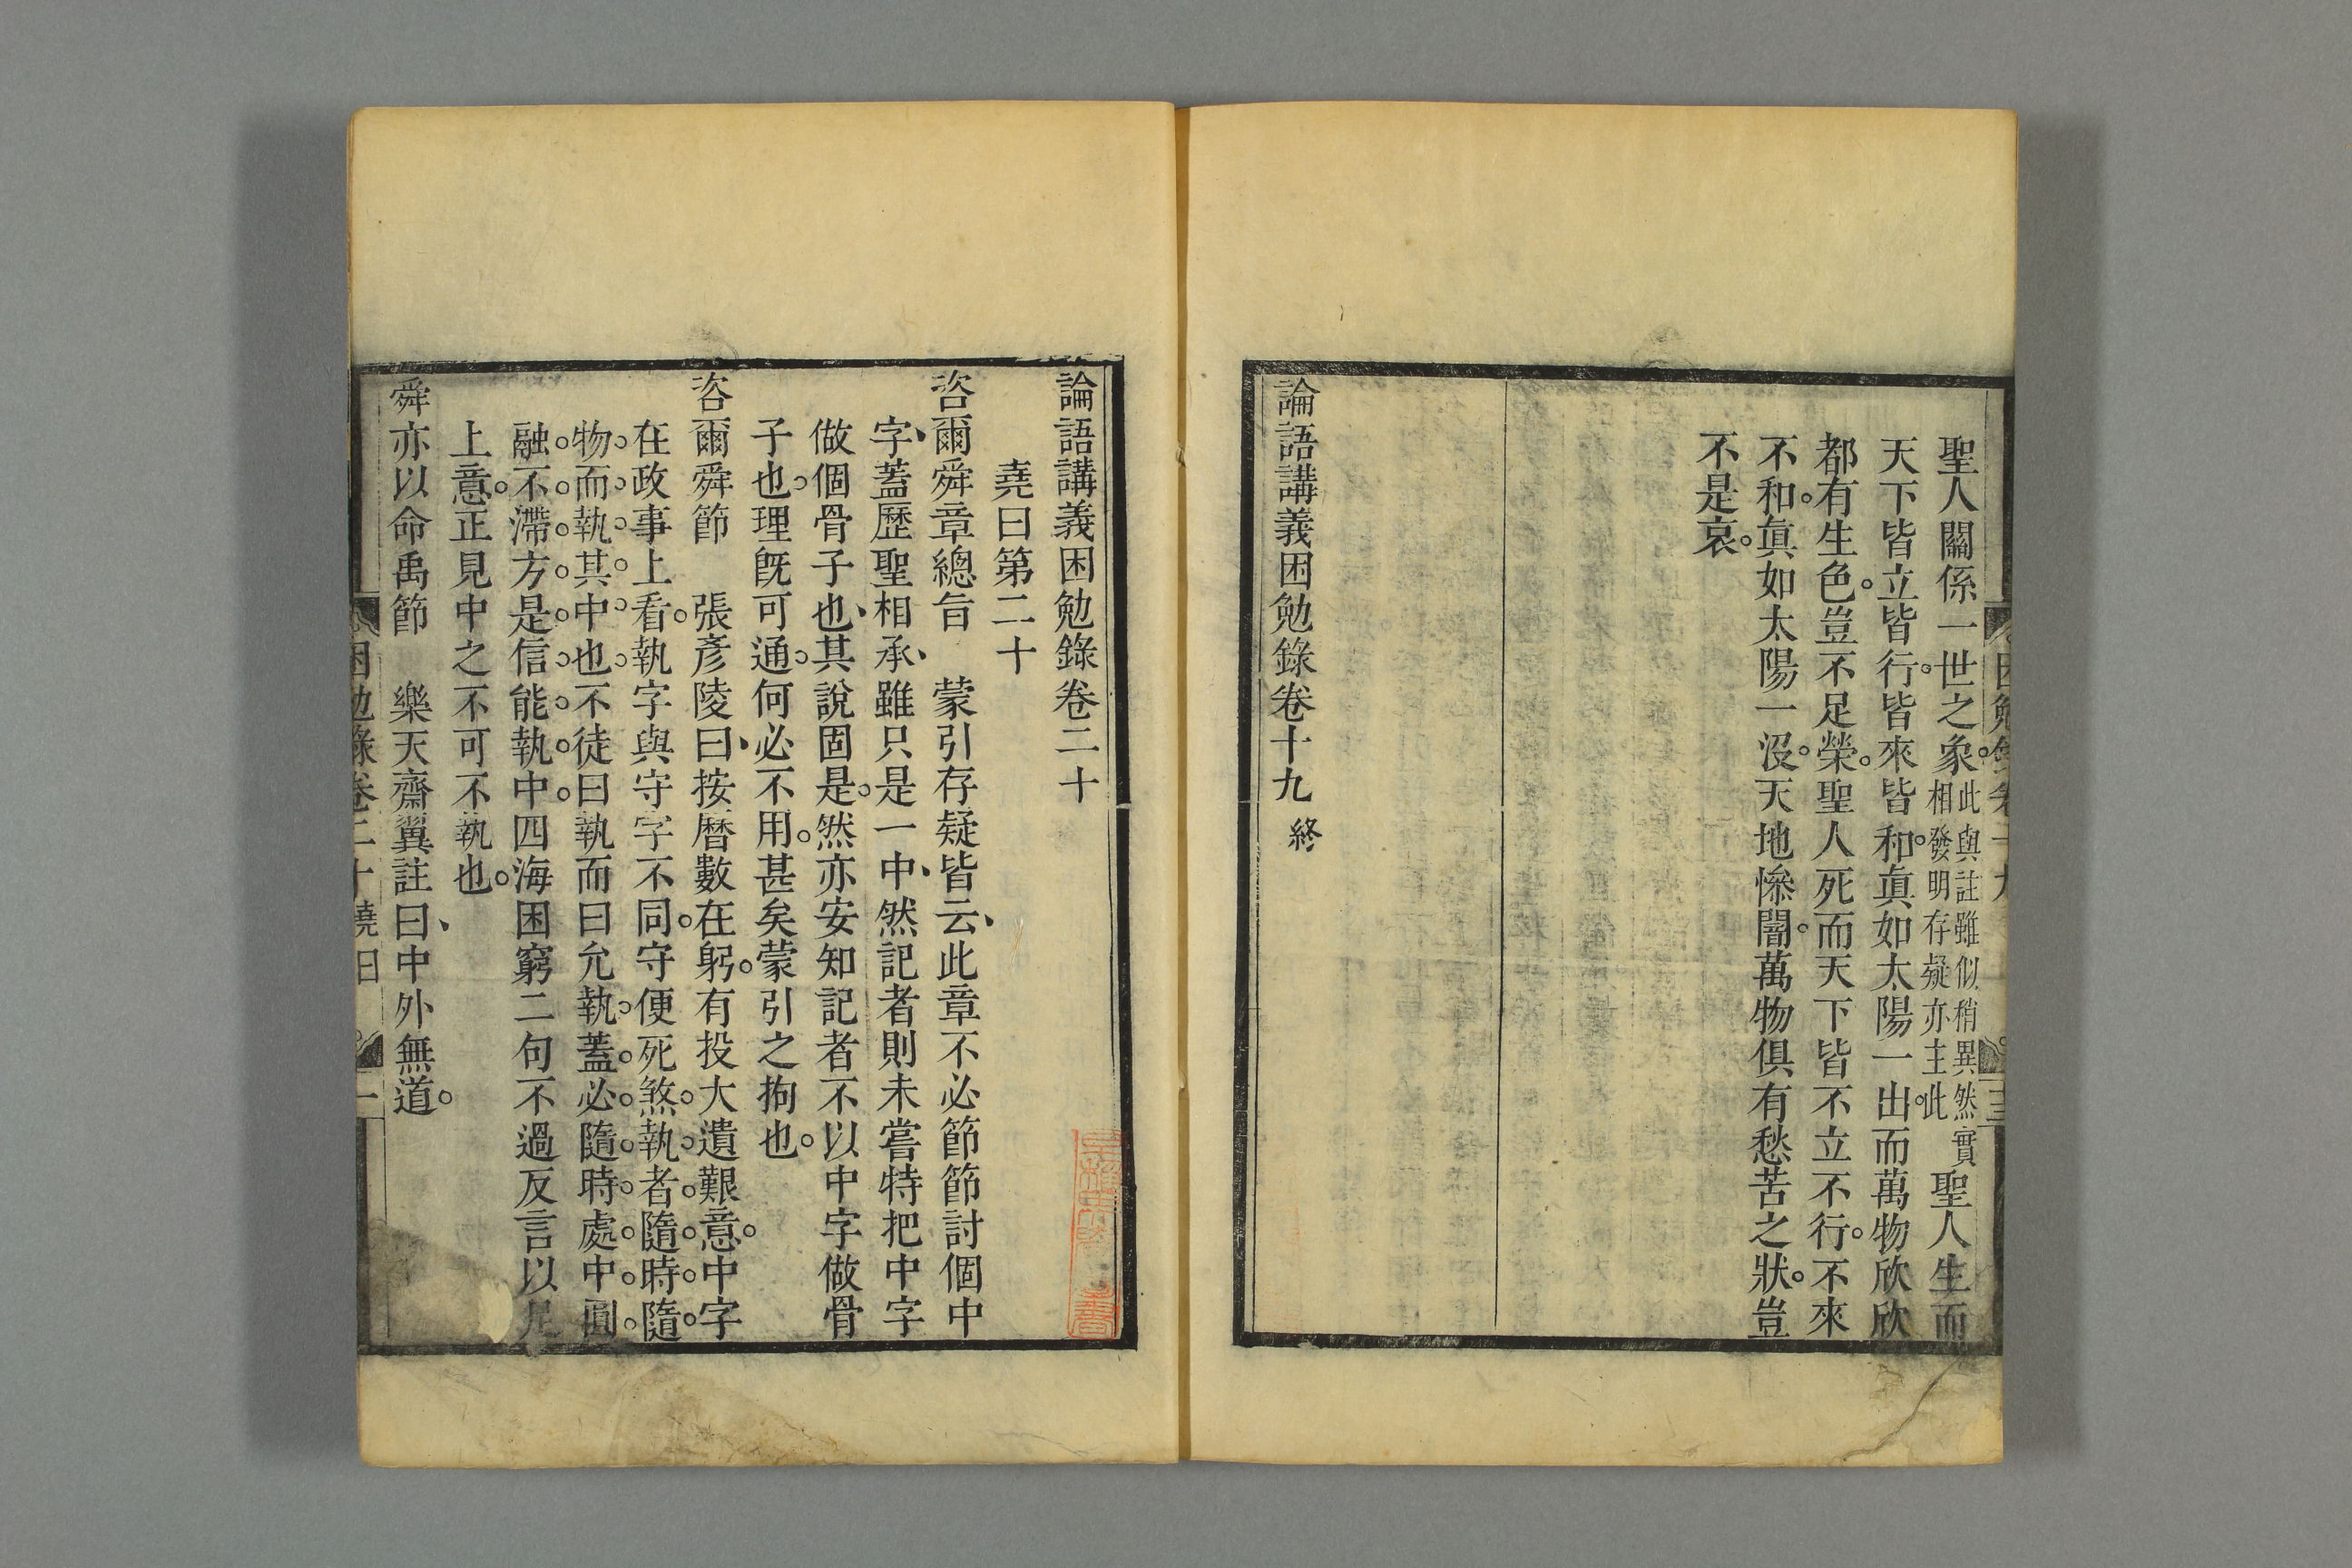 聖人關係一世之象。此與註雖似稍異然實相發明存疑亦主此聖人生而
天下皆立皆行。皆來皆和。眞如太陽一出。而萬物欣欣
都有生色。豈不足榮。聖人死而天下皆不立不行。不來
不和。眞如太陽一沒。天地慘闇。萬物俱有愁苦之狀。豈
不是哀。
論語講義困勉錄卷十九 終
論語講義困勉錄卷二十
堯曰第二十
咨爾舜章總旨 蒙引存疑皆云、此章不必節節討個中
字、蓋歷聖相承、雖只是一中、然記者則未嘗特把中字
做個骨子也、其說固是。然亦安知記者不以中字做骨
子也。理旣可通。何必不用。甚矣蒙引之拘也。
咨爾舜節 張彥陵曰、按曆數在躬。有投大遺艱意。中字
在政事上看。執字與守字不同。守便死煞。執者隨時隨
物而執其中也。不徒曰執而曰允執。蓋必隨時處中。圓
融不滯。方是信能執中。四海困窮二句不過反言以足
上意。正見中之不可不執也。
舜亦以命禹節 樂天齋翼註曰、中外無道。
困勉錄卷二十 堯曰 一